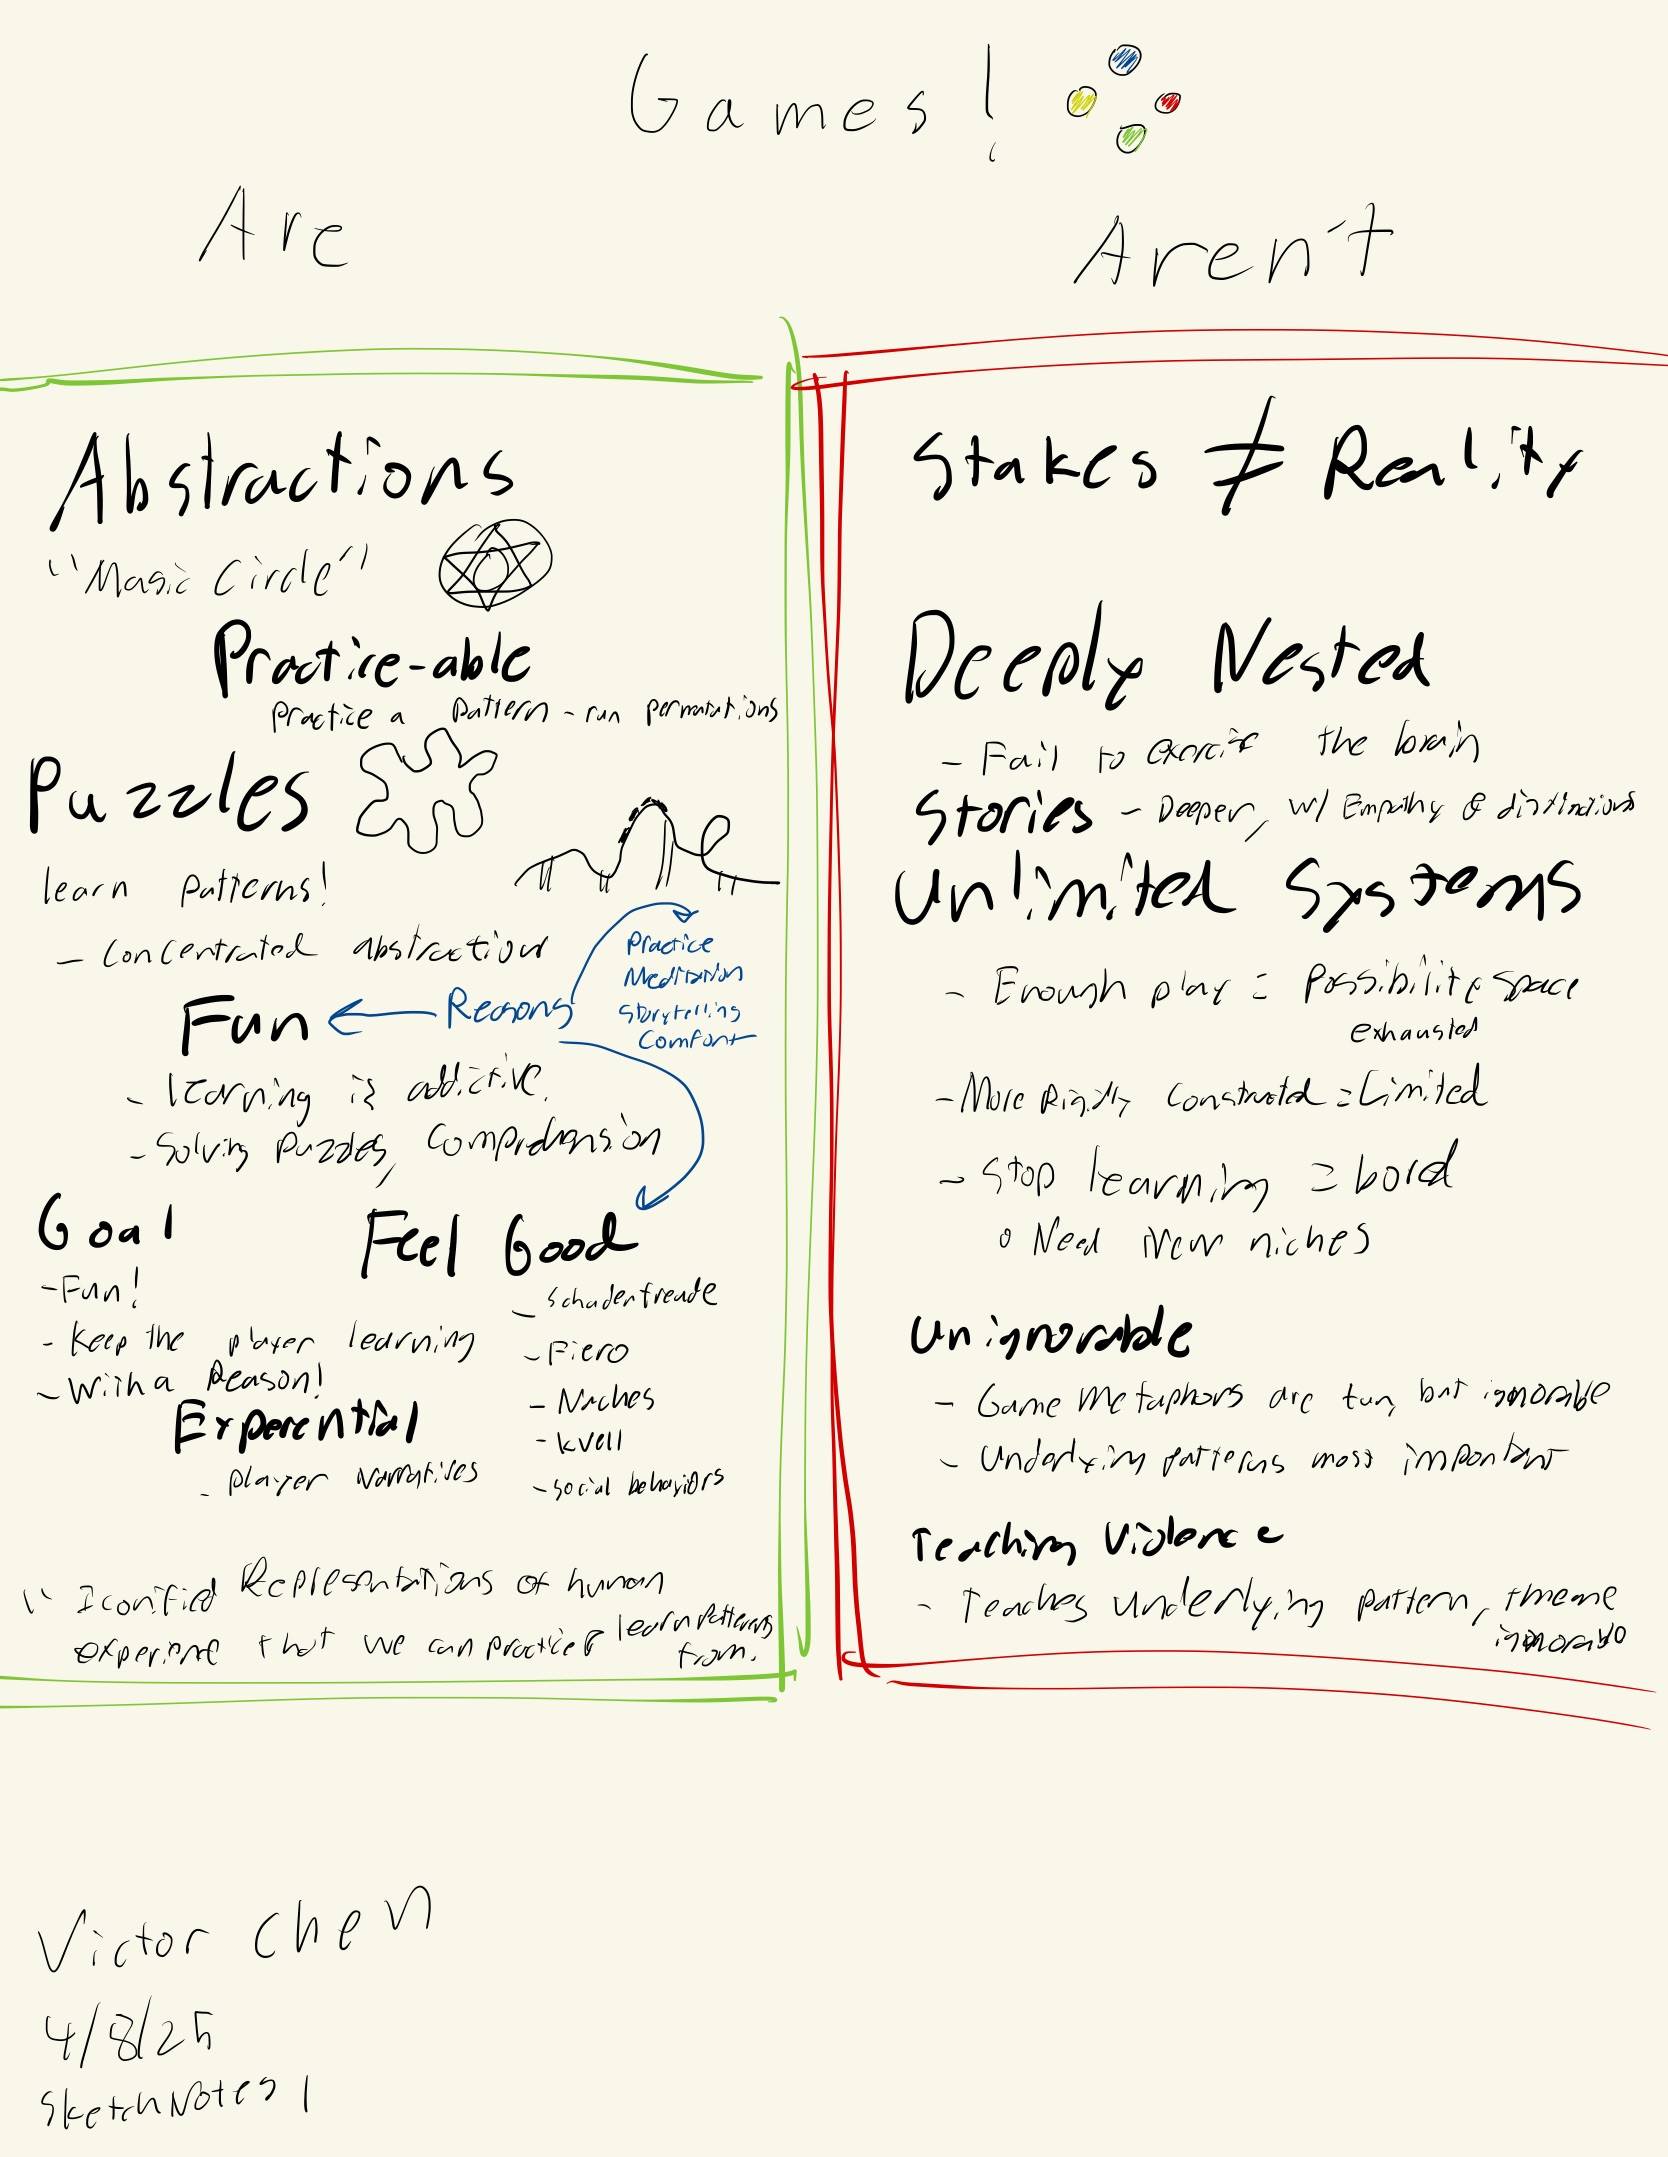 Games!
Are
Aren't
Abstractions
"Magic Circle"
Practice-able
Practice a pattern - run permutations
Puzzles
learn patterns!
- Concentrated abstraction
Fun
Reasons
Practice
Meditation
Storytelling
Comfort
- learning is addictive.
- Solving Puzzles, Comprehension
Goal
- Fun!
- Keep the player learning
- With a Reason!
Feel Good
- Schadenfreude
- Fiero
- Naches
- Kvell
- Social behaviors
Experential
- Player Narratives
"Iconified Representations of human
experience that we can practice & learn patterns
from.
Stakes ≠ Reality
Deeply Nested
- Fail to the brain
Stories - Deeper, w/ Empathy & distinctions
Unlimited Systems
- Enough play = Possibilite space
exhausted
- More Rigidly Constructed = Limited
- Stop learning = bord
o Need New niches
Unignorable
- Game Metaphors are fun, but ignorable
- Underlying patterns most important
Teaching Violence
- Teaches Underlying pattern, theme
Victor Chen
4/8/25
SketchNotes 1